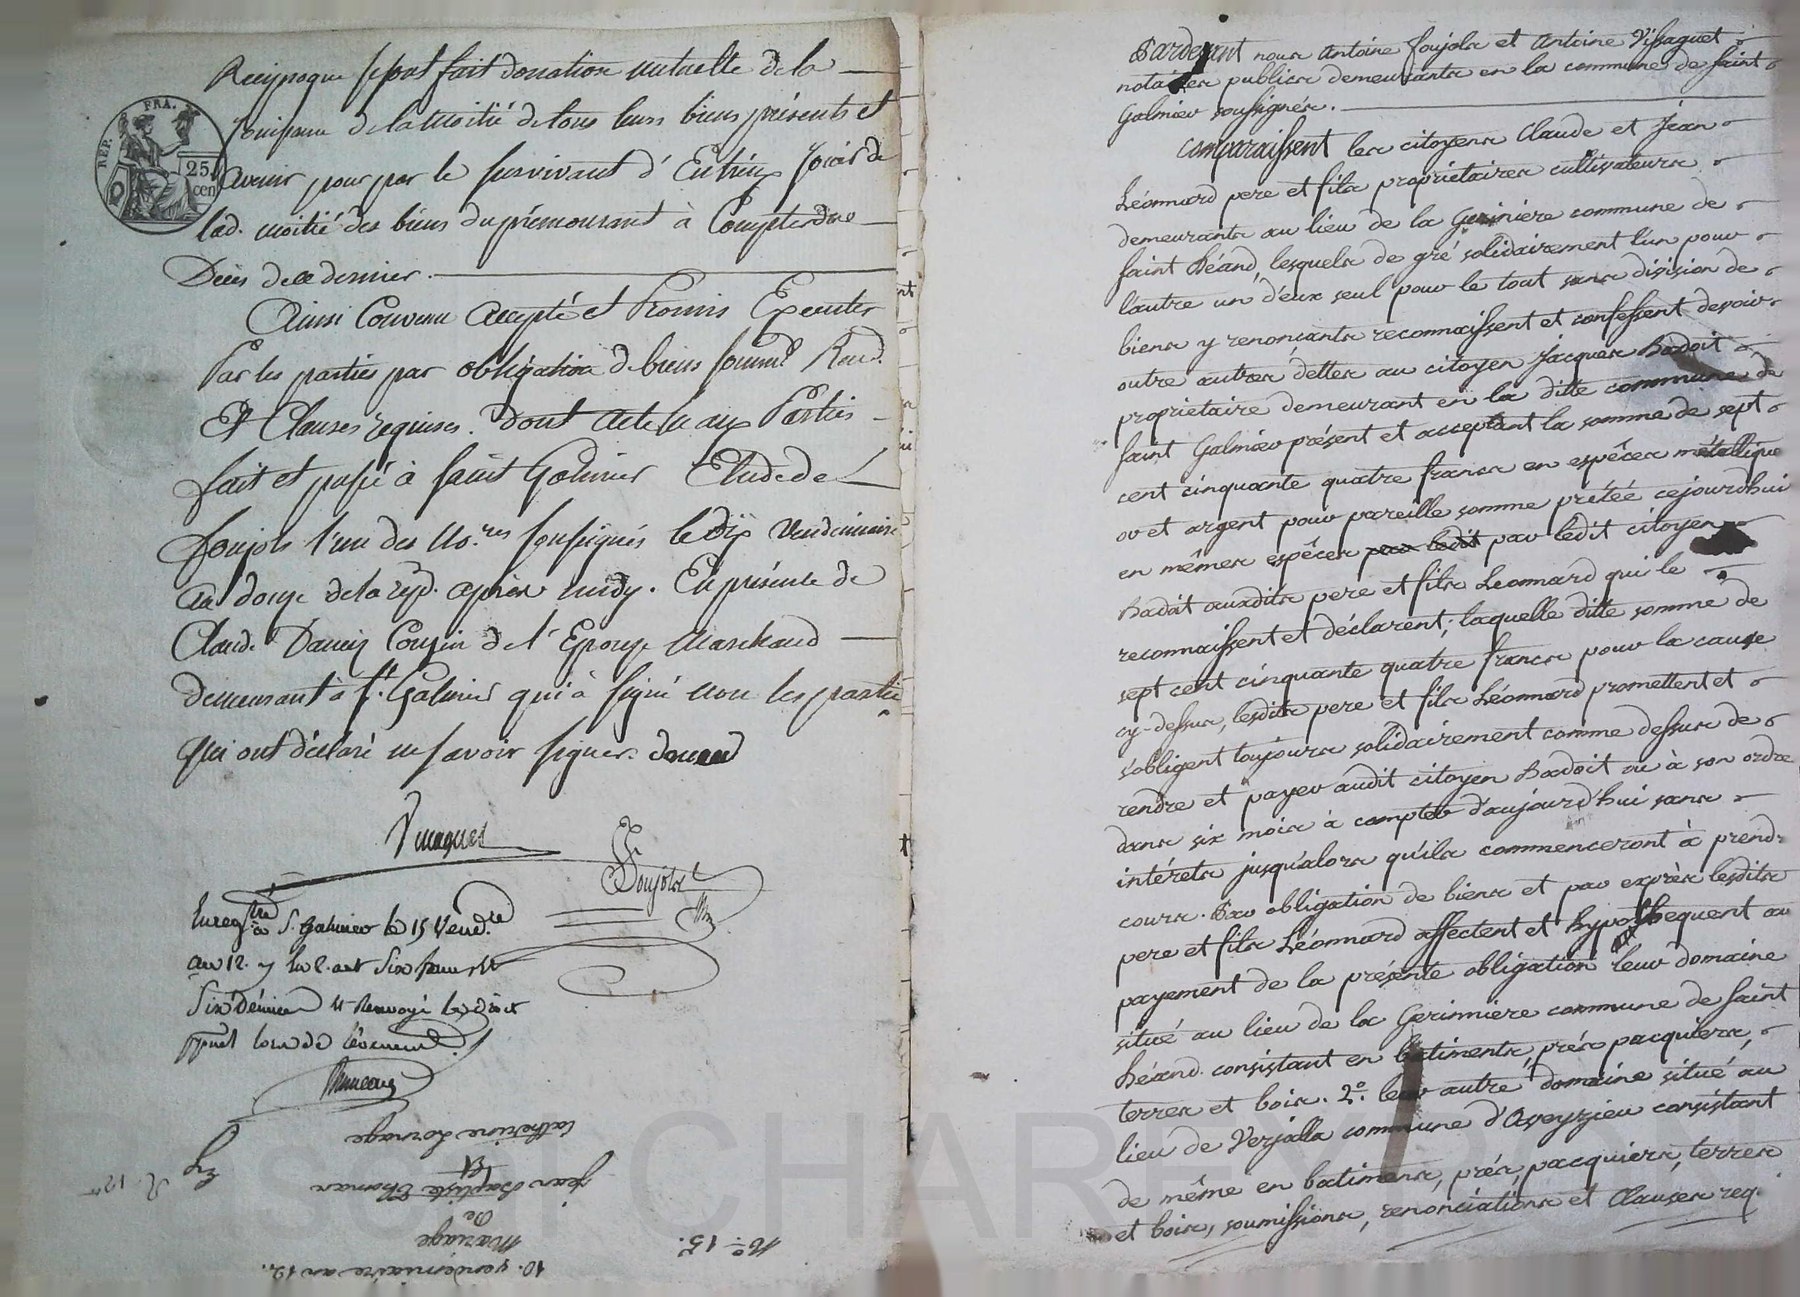 Reciproque se sont fait donation mutuelle de la
jouissance de la moitié de tous leurs biens présents et
avenir pour par le survivant d'Entr'eux jouir de
lad. moitié des biens du prémourant à Compter du
Décès de ce dernier.
REP. FRA.
25 cen
Ainsi Convenu accepté et Promis Executer
Par les parties par obligation de biens soum.s Ren.d
Et Clauses requises. Dont acte aux Parties
fait et passé à saint Galmier Etude de
foujols l'un des No.res soussignés le dix vendemiaire
an douze de la rép. après midy. En présence de
Claude Cousin de l'Epouse Marchand
demeurant à s.t Galmier qui à signé non les parties
qui ont déclaré ne savoir signer.
foujols
Enreg.tré à S. Galmier le 15 Vend.re
an 12.
Six Deniers et Renvoyé le droit
10. vendemiaire an 12.
Mariage
De
Jean Baptiste Thomas
Et
Catherine Lornage
N.o 15.
Pardevant nous Antoine foujols et Antoine Vissaguet
notaires publics demeurants en la commune de saint
Galmier soussignés.
Comparaissent les citoyens Claude et Jean
Léonnard pere et fils propriétaires cultivateurs
demeurants au lieu de la Geriniere commune de
saint héand, lesquels de gré solidairement l'un pour
l'autre un d'eux seul pour le tout sans division de
biens y renonçants reconnaissent et confessent devoir
outre autres dettes au citoyen Jacques Badoit
propriétaire demeurant en la ditte commune de
saint Galmier présent et acceptant la somme de sept
cent cinquante quatre francs en espêces métallique
or et argent pour pareille somme prétée cejourdhui
en mêmes espêces par ledit par ledit citoyen
Badoit auxdits pere et fils Leonnard qui le
reconnaissent et déclarent; laquelle ditte somme de
sept cent cinquante quatre francs pour la cause
cy-dessus, lesdits pere et fils Léonnard promettent et
s'obligent toujours solidairement comme dessus de
rendre et payer audit citoyen Badoit ou à son ordre
dans six mois à compter d'aujourd'hui sans
intérets jusqu'alors qu'ils commenceront à prendre
cours. Par obligation de biens et par exprès lesdits
pere et fils Léonnard affectent et hypothequent au
payement de la présente obligation leur domaine
situé au lieu de la Gerinniere commune de saint
héand. consistant en batiments, prés pacquiers,
terres et bois. 2.o leur autre domaine situé au
lieu de Verjalla commune d'Aveyzieu consistant
de même en batiments, prés, pacquiers, terres
et bois, soumissions, renonciations et Clauses req.
scal CHAREYRON